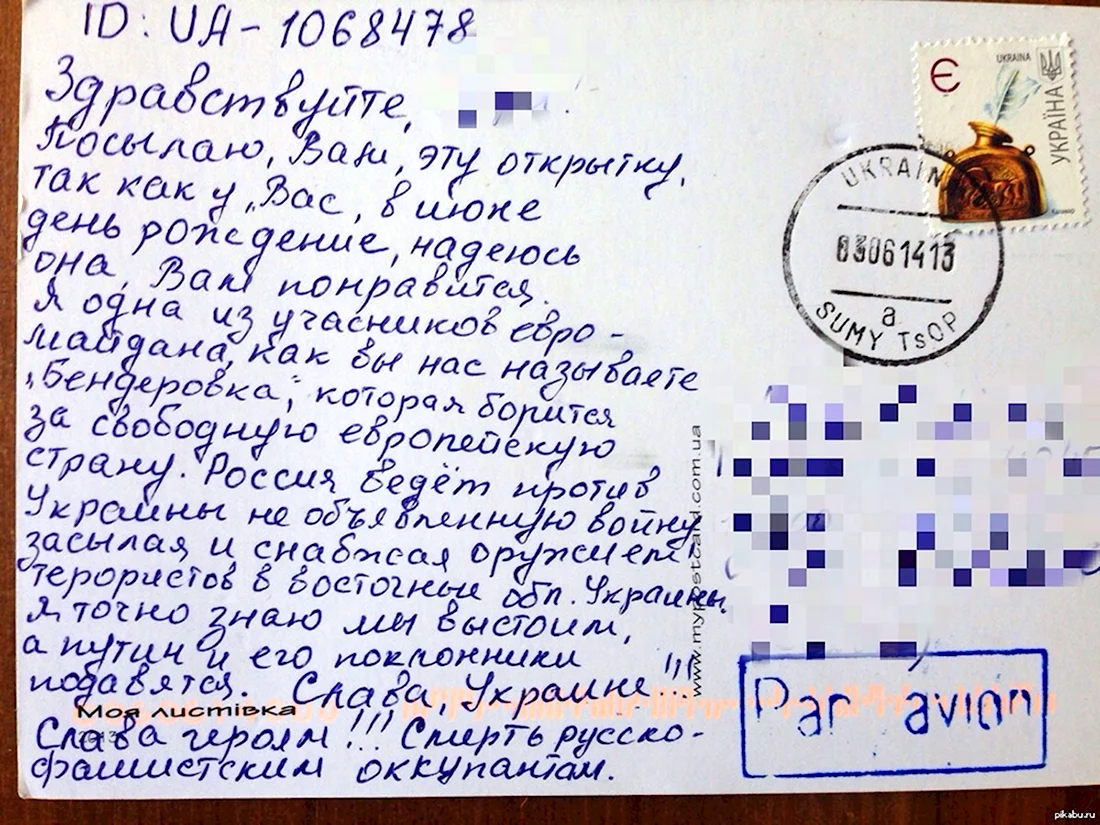 ID: UA-1068478
Здравствуйте,
Посылаю, Вам, эту открытку,
так как у, Вас, в июне
день рождение, надеюсь
она, Вам понравится.
Я одна из учасников евро-
майдана, как вы нас называете
"Бендеровка", которая борится
за свободную европейскую
страну. Россия ведёт против
Украины не объявленную войну
засылая и снабжая оружием
терористов в восточные обл. Украины.
Я точно знаю мы выстоим,
а путин и его поклонники
подавятся. Слава, Украине!!!
Слава героям!!! Смерть русско-
фашистским оккупантам.
Моя листівка
www.mypostcard.com.ua
Є
UKRAINA
УКРАЇНА
UKRAIN
03061413
a
SUMY TsOP
Par avion
pikabu.ru